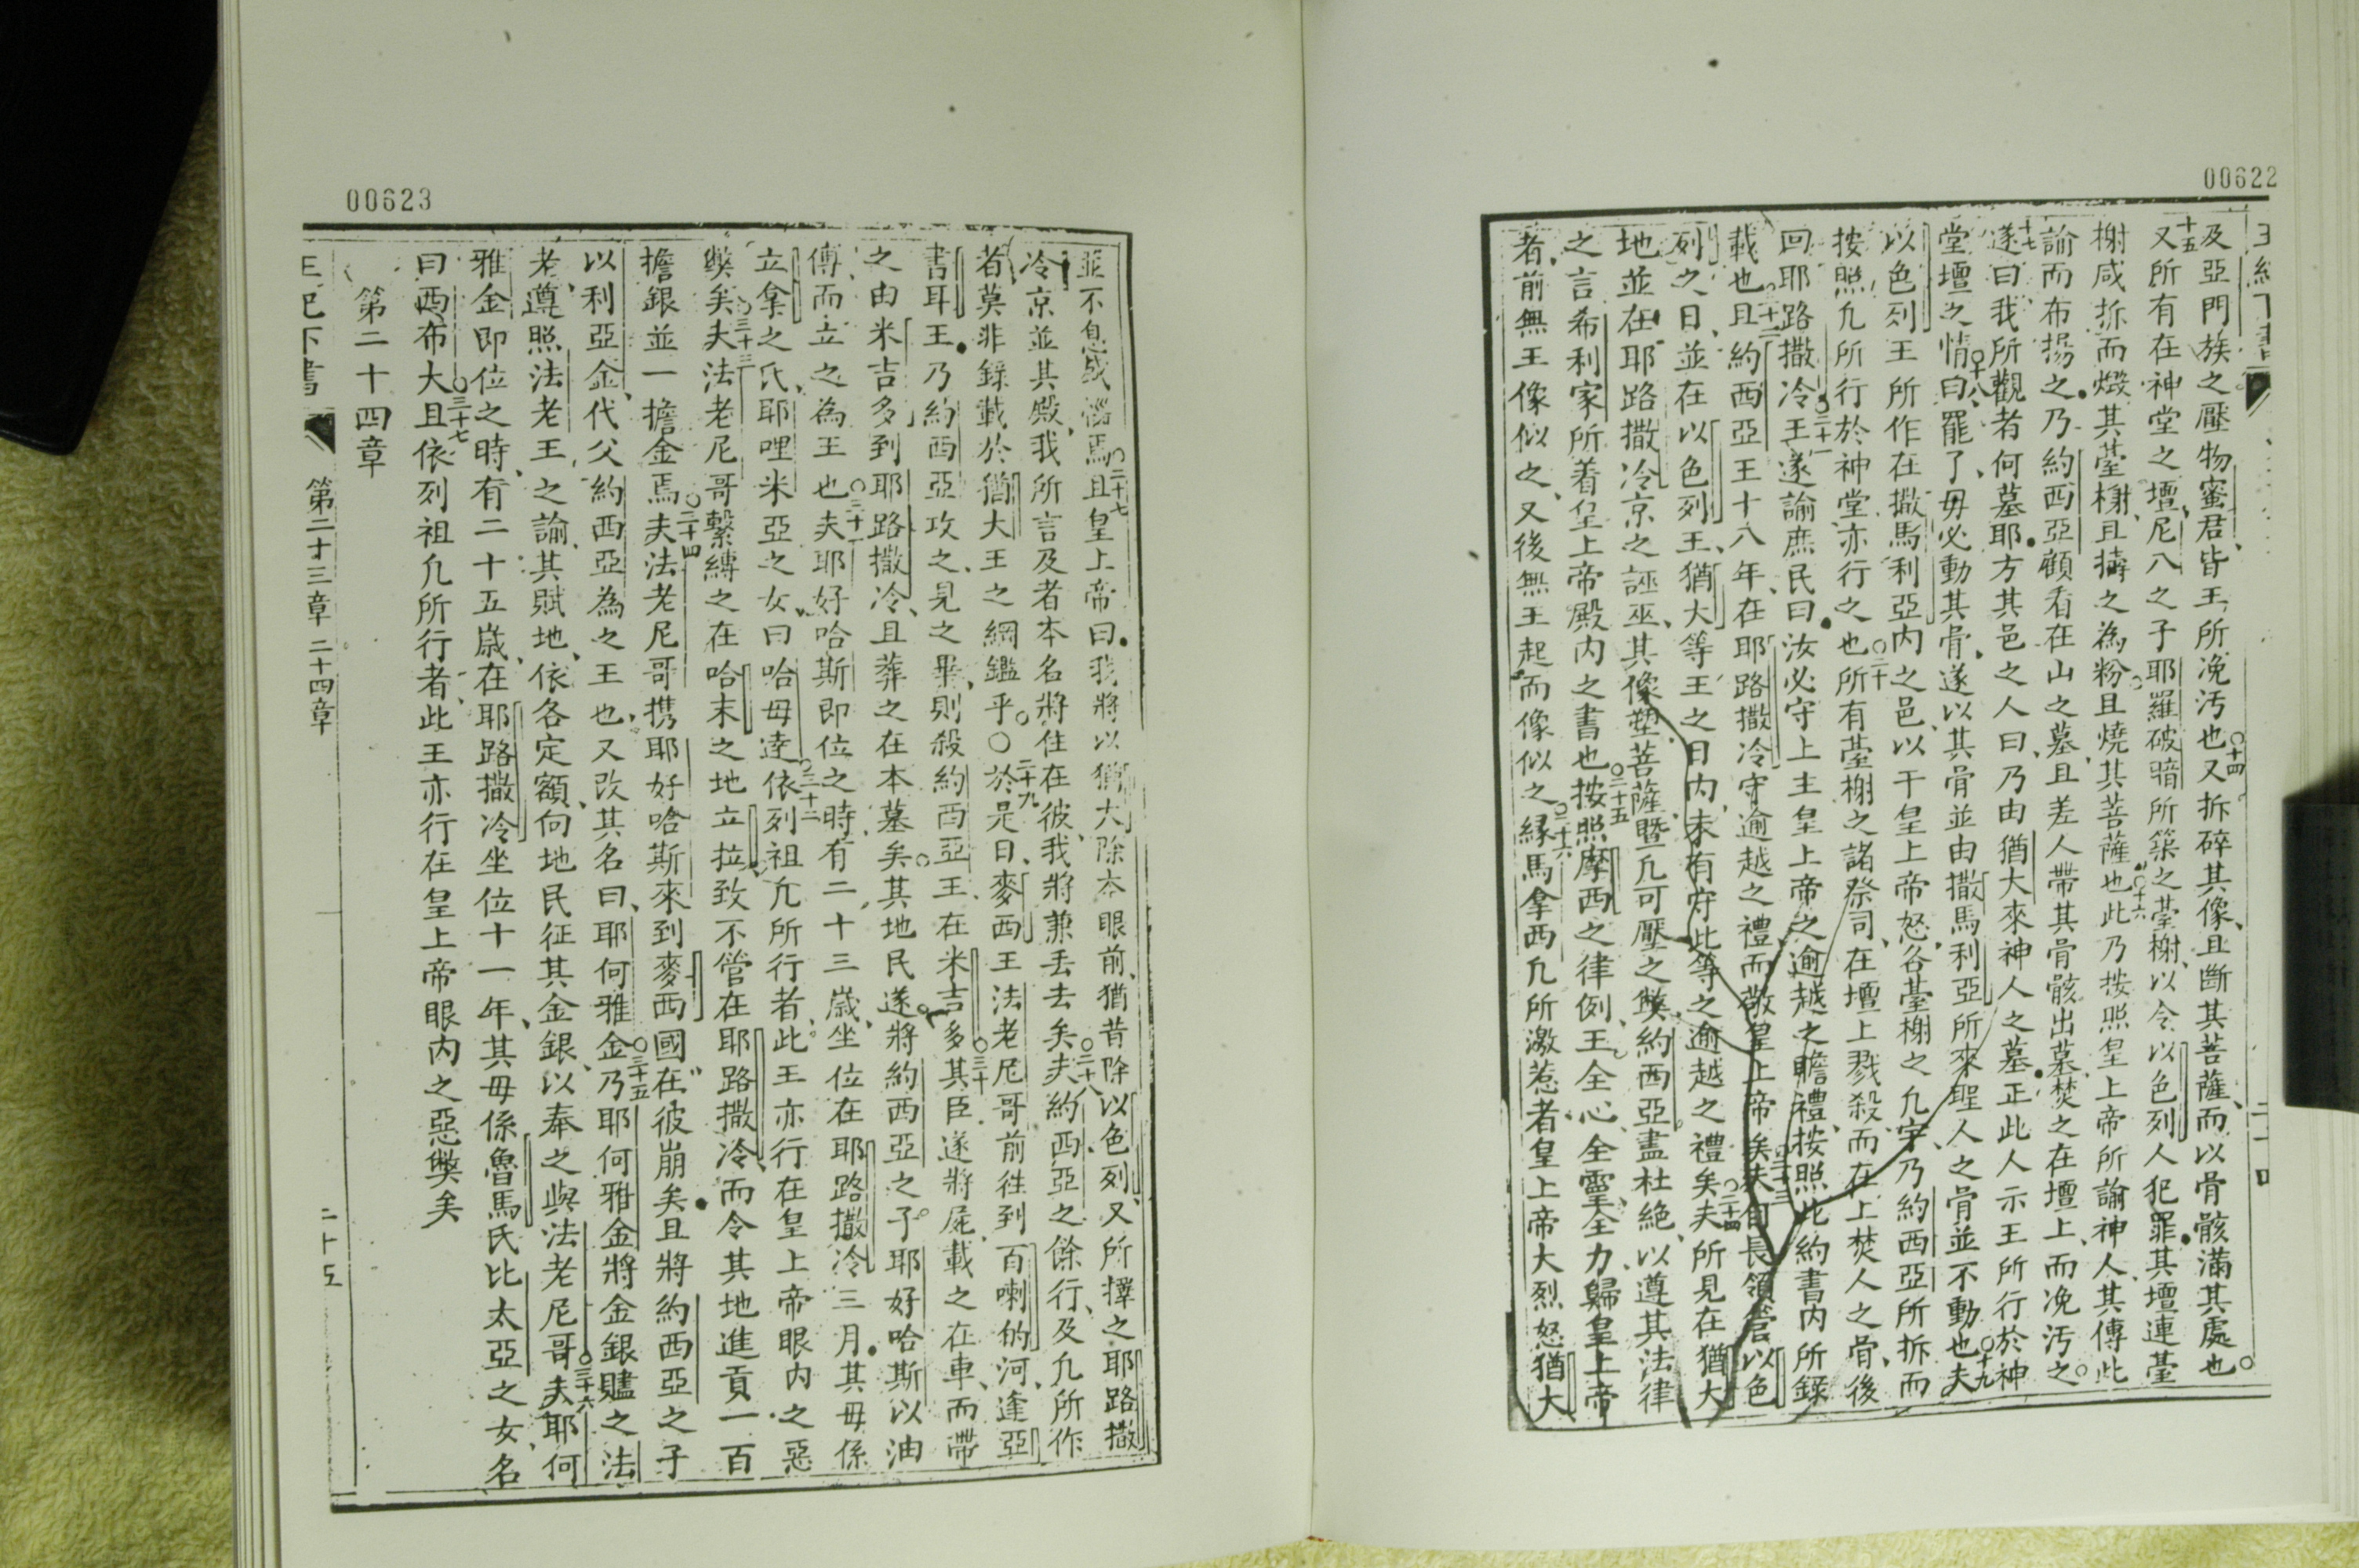 00622
及亞門族之壓物蜜君皆王所浼污也○十四又拆碎其像且斷其菩薩而以骨骸滿其處也○
十五又所有在神堂之壇尼八之子耶羅破暗所築之臺榭以令以色列人犯罪其壇連臺
榭咸拆而燬其臺榭且擣之為粉且燒其菩薩也○十六此乃按照皇上帝所諭神人其傳此
諭而布揚之乃約西亞顧看在山之墓且差人帶其骨骸出墓焚之在壇上而浼污之○
十七遂曰我所觀者何墓耶方其邑之人曰乃由猶大來神人之墓正此人示王所行於神
堂壇之情○十八曰罷了毋必動其骨遂以其骨並由撒馬利亞所來聖人之骨並不動也○十九夫
以色列王所作在撒馬利亞內之邑以干皇上帝怒各臺榭之凢宇乃約西亞所拆而
按照凢所行於神堂亦行之也○二十所有臺榭之諸祭司在壇上戮殺而在上焚人之骨後
回耶路撒冷○二十一王遂諭庶民曰汝必守上主皇上帝之逾越之瞻禮按照此約書內所錄
載也○二十二且約西亞王十八年在耶路撒冷守逾越之禮而敬皇上帝矣○二十三夫自長領管以色
列之日並在以色列王猶大等王之日內未有守此等之逾越之禮矣○二十四夫所見在猶大
地並在耶路撒冷京之誣巫其像塑菩薩暨凢可壓之獘約西亞盡杜絶以遵其法律
之言希利家所着皇上帝殿內之書也○二十五按照摩西之律例王全心全靈全力歸皇上帝
者前無王像似之又後無王起而像似之○二十六緣馬拿西凢所激惹者皇上帝大烈怒猶大
00623
並不息或惱焉○二十七且皇上帝曰我將以猶大除本眼前猶昔除以色列又所擇之耶路撒
冷京並其殿我所言及者本名將住在彼我將兼丟去矣○二十八夫約西亞之餘行及凢所作
者莫非錄載於猶大王之綱鑑乎○二十九於是日麥西王法老尼哥前徃到百喇的河逢亞
書耳王乃約西亞攻之見之畢則殺約西亞王在米吉多○三十其臣遂將屍載之在車而帶
之由米吉多到耶路撒冷且葬之在本墓矣○其地民遂將約西亞之子耶好哈斯以油
傅而立之為王也○三十一夫耶好哈斯即位之時有二十三歲坐位在耶路撒冷三月其毋係
立拿之氏耶哩米亞之女曰哈毋逹○三十二依列祖凢所行者此王亦行在皇上帝眼內之惡
獘矣○三十三夫法老尼哥繫縛之在哈末之地立拉致不管在耶路撒冷而令其地進貢一百
擔銀並一擔金焉○三十四夫法老尼哥携耶好哈斯來到麥西國在彼崩矣且將約西亞之子
以利亞金代父約西亞為之王也又改其名曰耶何雅金○三十五乃耶何雅金將金銀贐之法
老遵照法老王之諭其賦地依各定額向地民征其金銀以奉之與法老尼哥○三十六夫耶何
雅金即位之時有二十五歲在耶路撒冷坐位十一年其毋係魯馬氏比太亞之女名
曰西布大○三十七且依列祖凢所行者此王亦行在皇上帝眼內之惡獘矣
第二十四章
王紀下書 第二十三章 二十四章 二十五